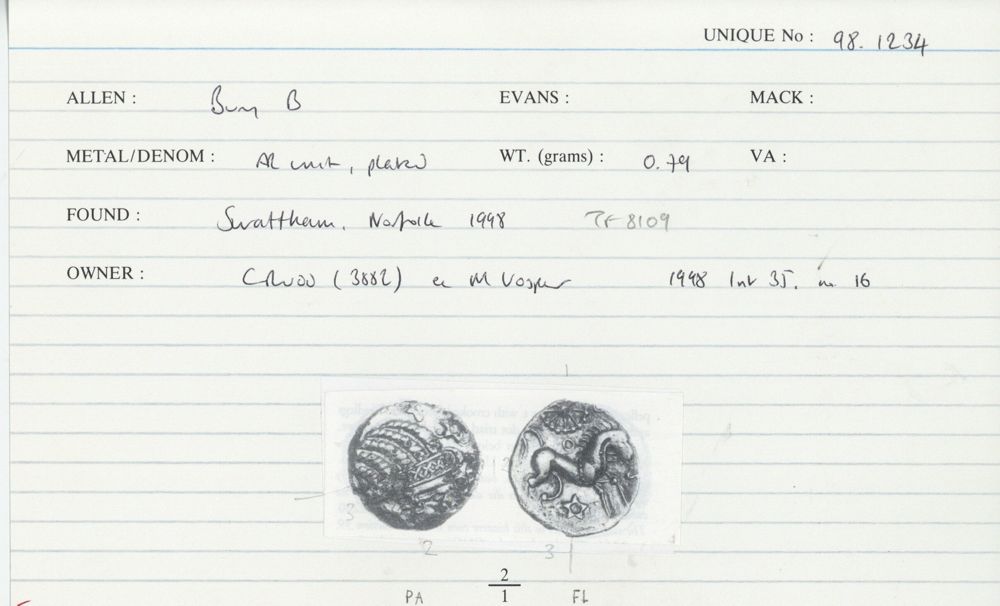 UNIQUE No : 98. 1234
ALLEN : Bury B EVANS : MACK :
METAL/DENOM : AR unit, plated WT. (grams) : 0.79 VA :
FOUND : Swaffham, Norfolk 1998 TF 8109
OWNER : CRWOO (3882) ex M Vosper 1998 list 35, no. 16
3
2
3
2
1
PA FL